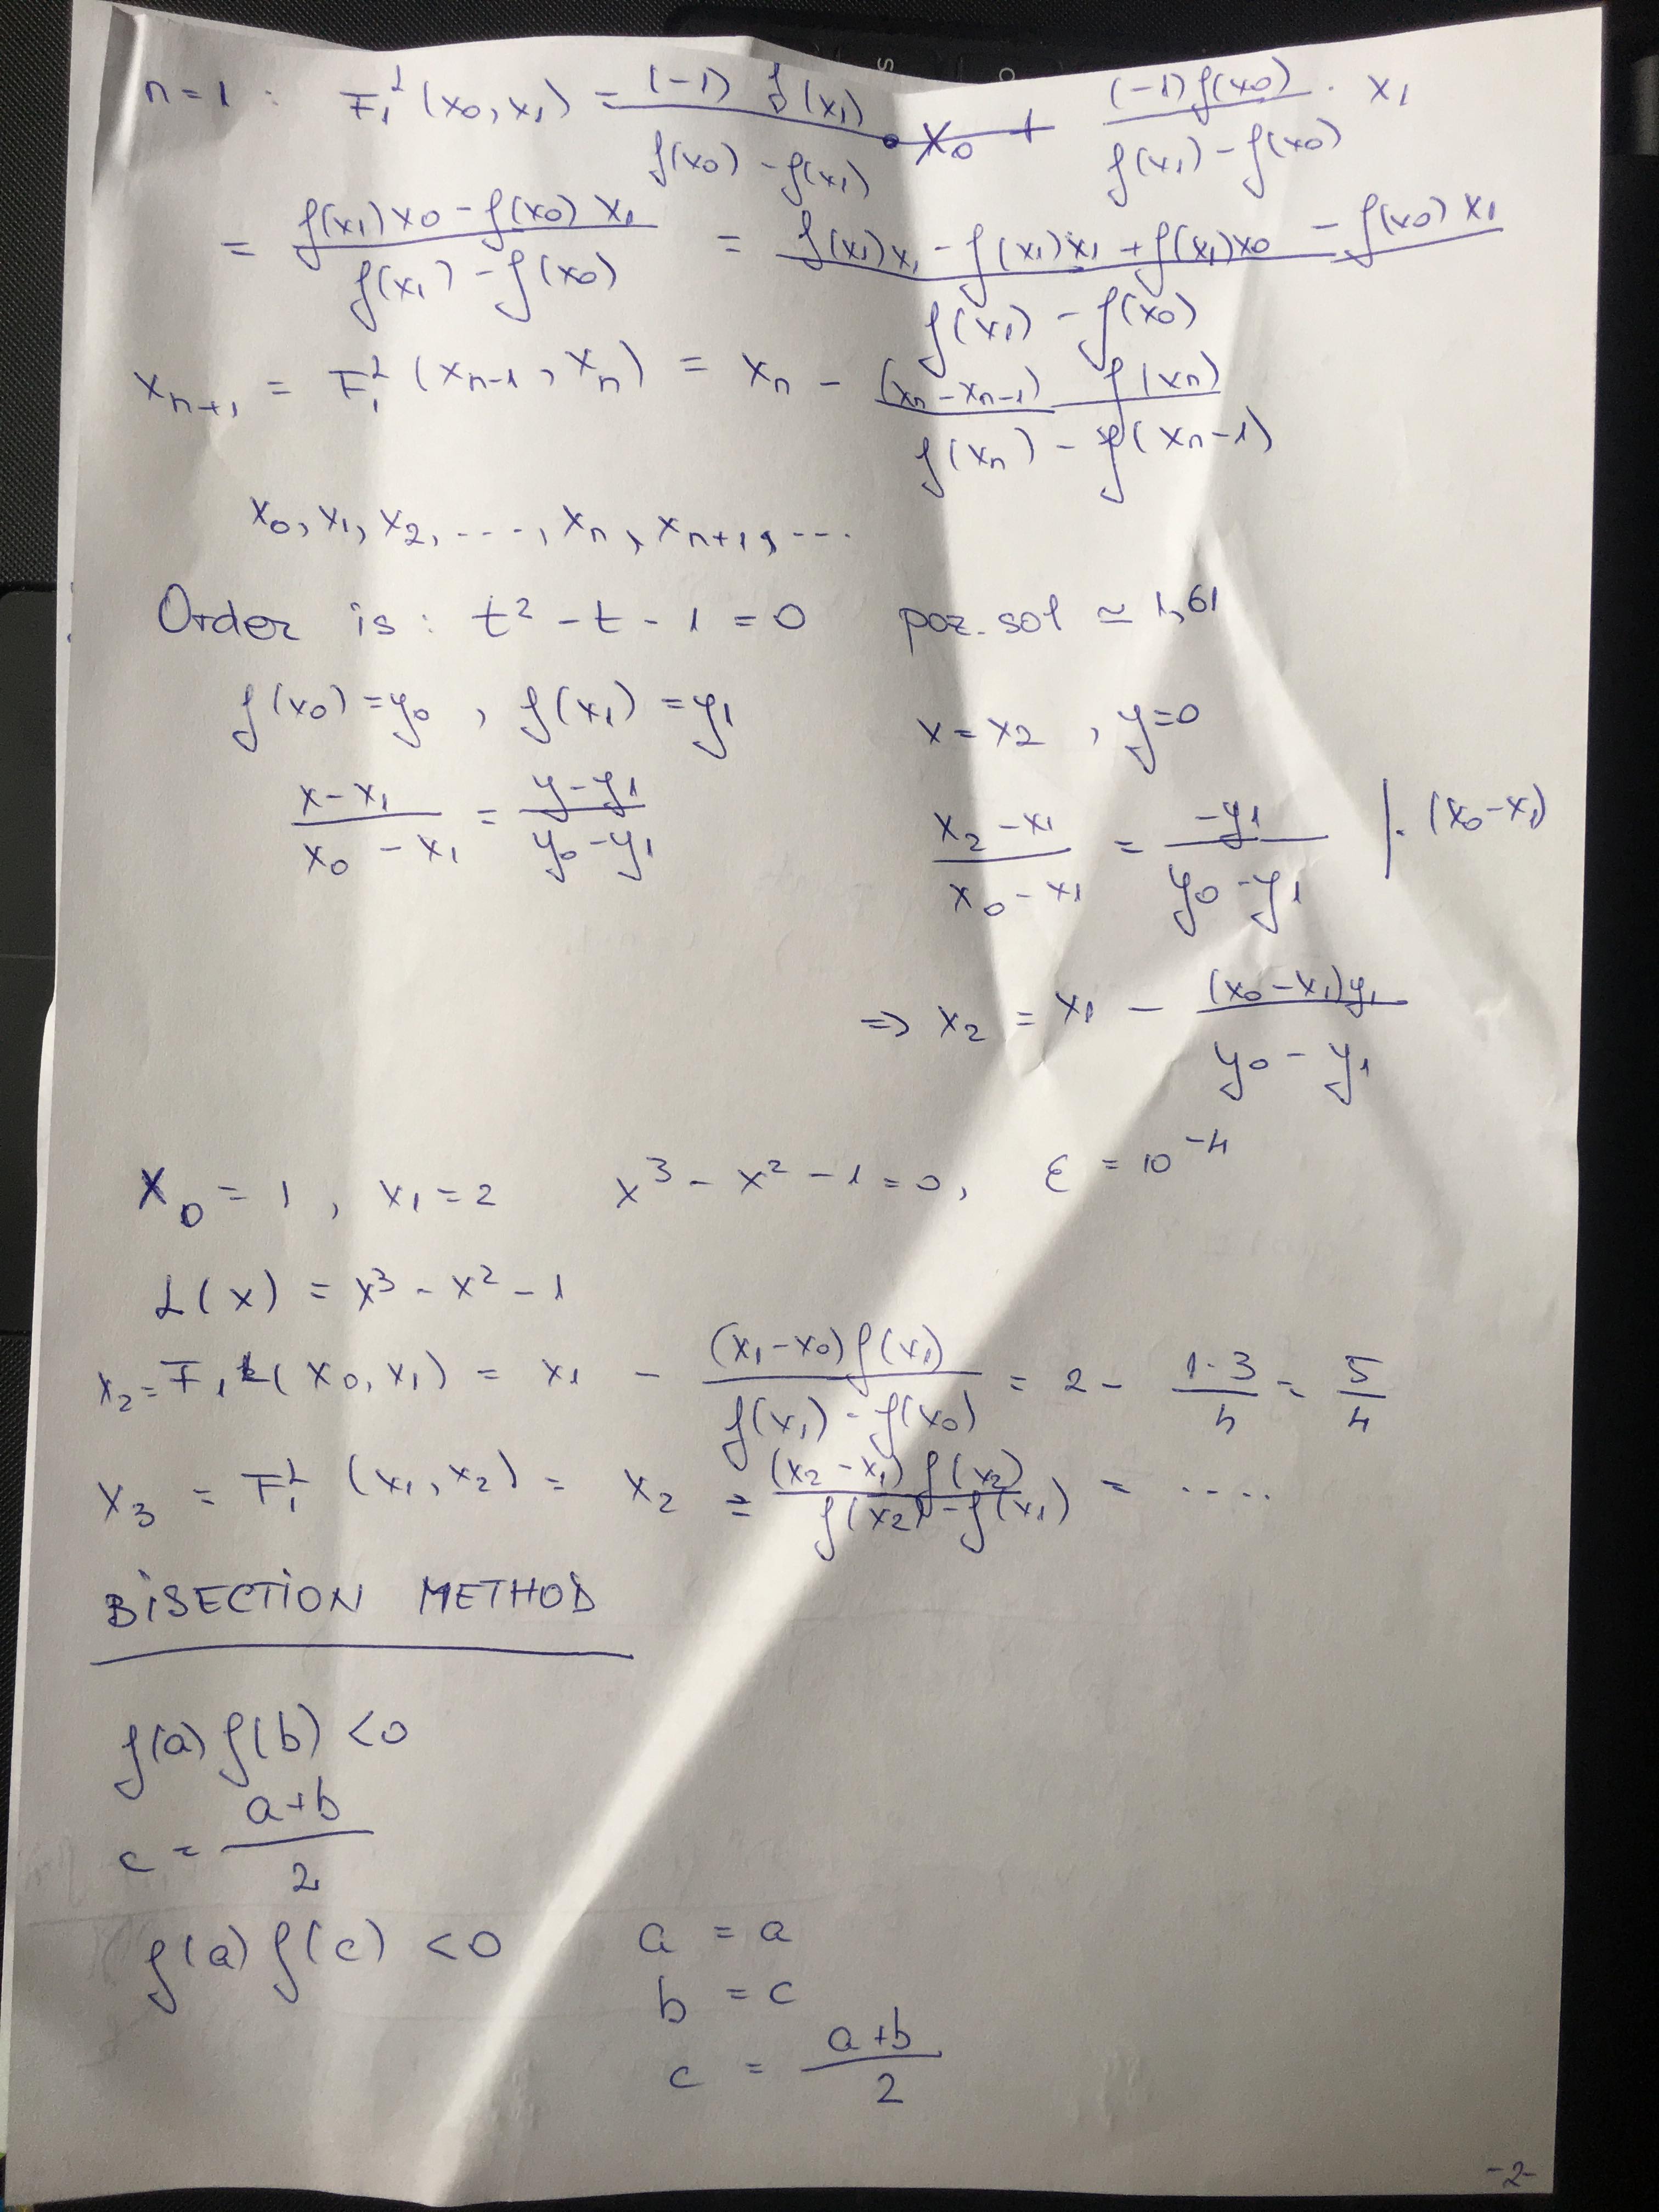 n=1 : F₁ᴸ(x₀,x₁) = (-1) f(x₁) / (f(x₀) - f(x₁)) · x₀ + (-1) f(x₀) / (f(x₁) - f(x₀)) · x₁
= (f(x₁)x₀ - f(x₀)x₁) / (f(x₁) - f(x₀)) = (f(x₁)x₁ - f(x₁)x₁ + f(x₁)x₀ - f(x₀)x₁) / (f(x₁) - f(x₀))
xₙ₊₁ = F₁ᴸ(xₙ₋₁, xₙ) = xₙ - (xₙ - xₙ₋₁) f(xₙ) / (f(xₙ) - f(xₙ₋₁))
x₀, x₁, x₂, ...., xₙ, xₙ₊₁, ...
Order is : t² - t - 1 = 0 poz. sol ≃ 1,61
f(x₀) = y₀ , f(x₁) = y₁ x = x₂ , y = 0
(x - x₁) / (x₀ - x₁) = (y - y₁) / (y₀ - y₁) (x₂ - x₁) / (x₀ - x₁) = -y₁ / (y₀ - y₁) | · (x₀ - x₁)
=> x₂ = x₁ - (x₀ - x₁)y₁ / (y₀ - y₁)
x₀ = 1 , x₁ = 2 x³ - x² - 1 = 0, ε = 10⁻⁴
f(x) = x³ - x² - 1
x₂ = F₁ᴸ(x₀, x₁) = x₁ - (x₁ - x₀) f(x₁) / (f(x₁) - f(x₀)) = 2 - 1·3 / 4 = 5/4
x₃ = F₁ᴸ (x₁, x₂) = x₂ - (x₂ - x₁) f(x₂) / (f(x₂) - f(x₁)) = ....
BISECTION METHOD
f(a) f(b) < 0
c = (a+b) / 2
f(a) f(c) < 0 a = a
b = c
c = (a+b) / 2
-2-